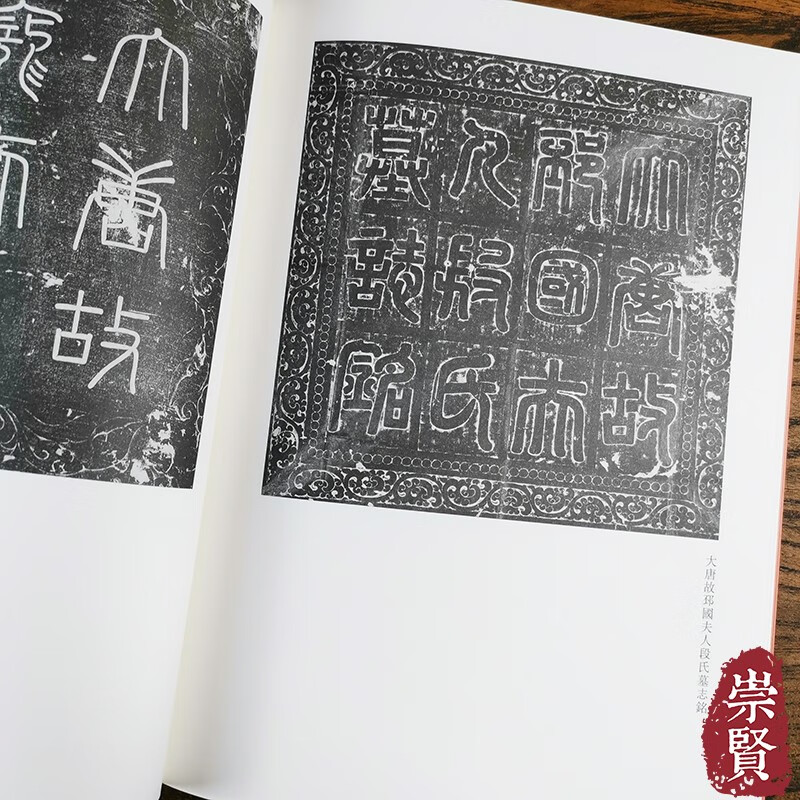 大唐故
邳國夫
人段氏
墓誌銘
大唐故邳國夫人段氏墓志銘
大唐故
崇賢